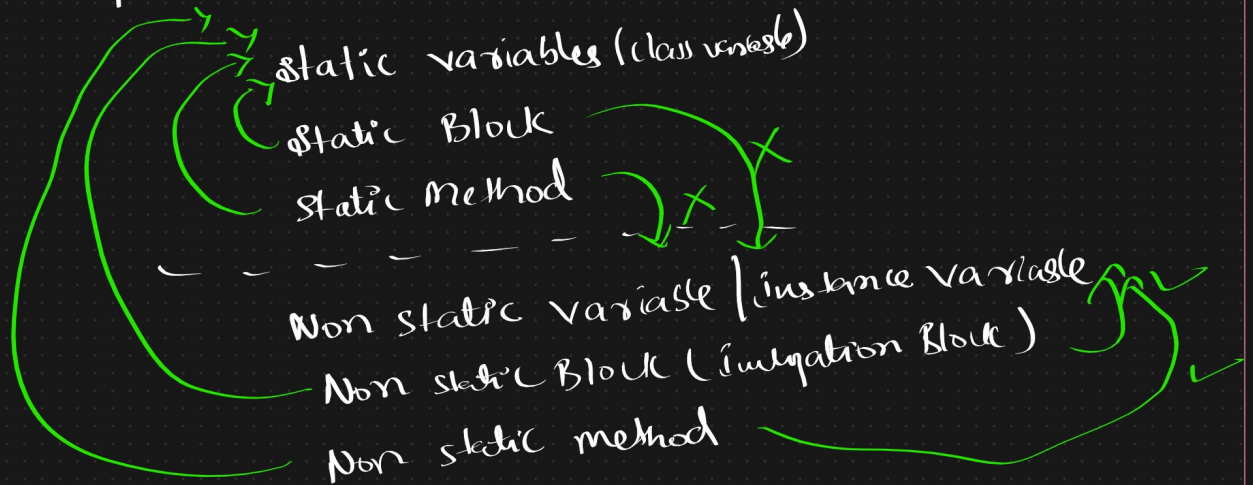 Static variables (class variable)
Static Block
Static Method
Non static variable | instance variable
Non static Block ( Block)
Non static method